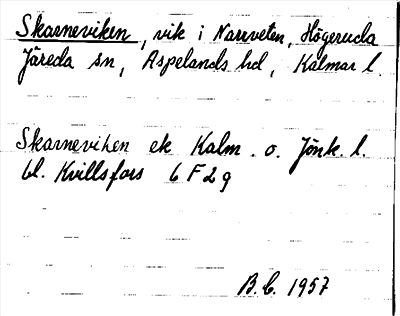 Skarneviken, vik i Narrveten, Högeruda
Järeda sn, Aspelands hd, Kalmar l.
Skarneviken ek Kalm. o. Jönk. l.
bl. Kvillsfors 6 F 2 g
B.C. 1957